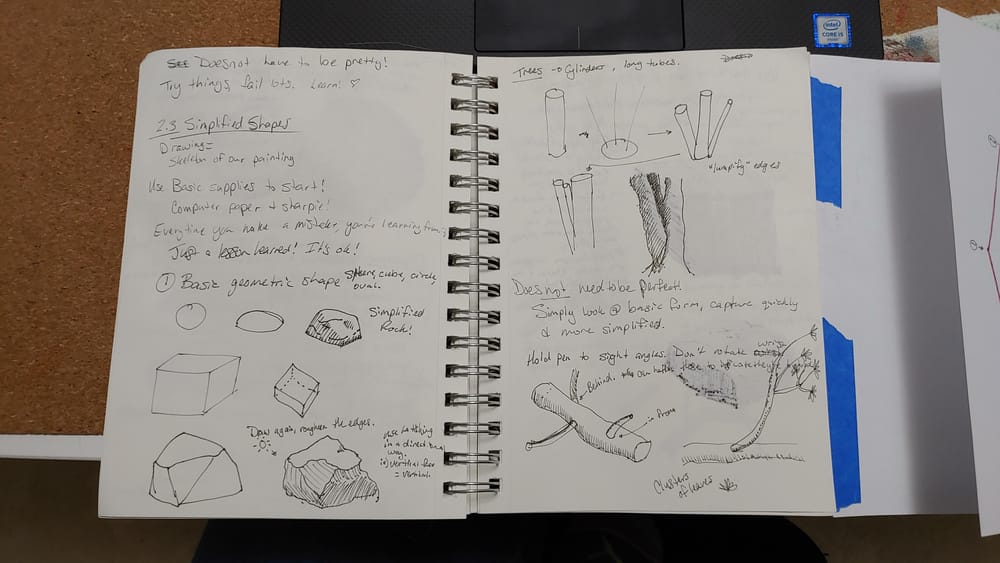 Does not have to be pretty!
Try things, fail lots. Learn! ♡
2.3 Simplified Shapes
Drawing =
Skeleton of our painting
Use Basic supplies to start!
Computer paper + sharpie!
Everytime you make a mistake, you're learning from it
Just a lesson learned! It's ok!
① Basic geometric shape sphere, cube, circle,
oval.
Simplified
Rock!
Draw again, roughen the edges.
use hatching
in a directional
way.
vertical face
= vertical.
Trees → Cylinders, long tubes.
"lumpify" edges
Does not need to be perfect!
Simply look @ basic form, capture quickly
& more simplified.
Hold pen to sight angles. Don't rotate wrist
Behind.
From
Clusters
of leaves
intel
CORE i5